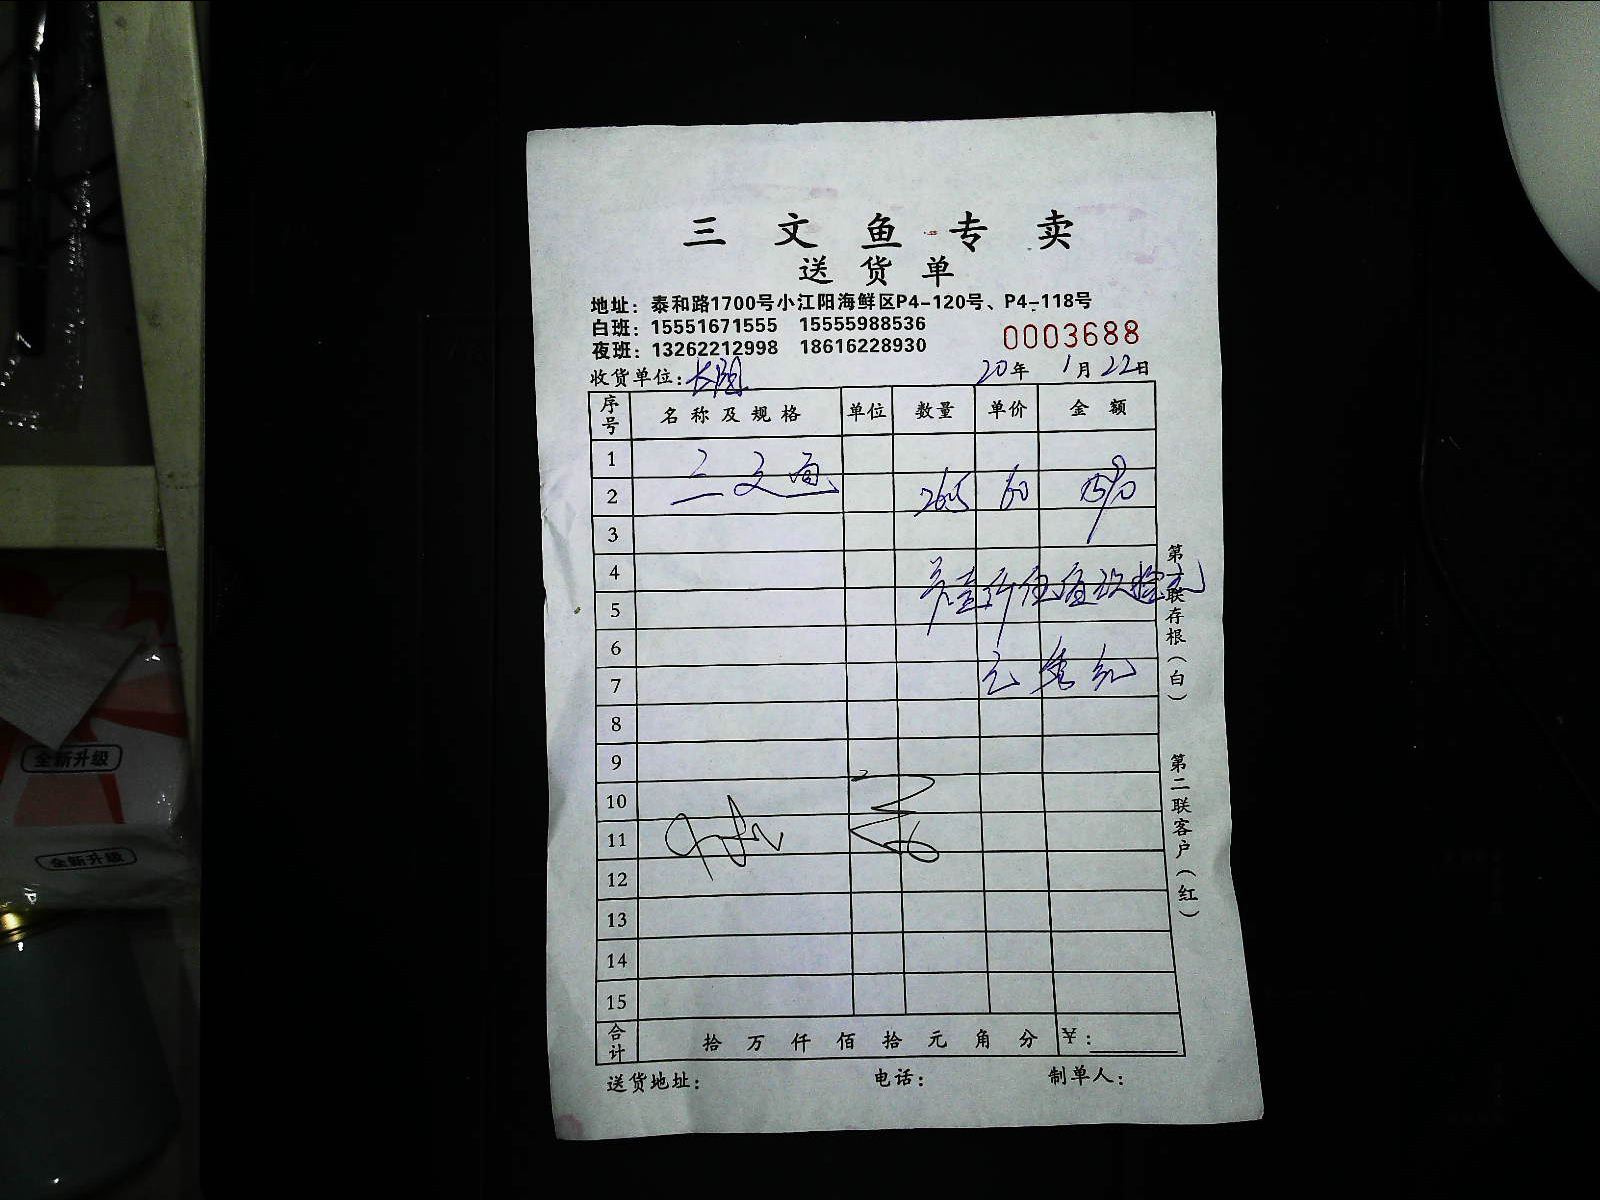 三文鱼专卖
送货单
地址：泰和路1700号小江阳海鲜区P4-120号、P4-118号
白班：15551671555 15555988536
0003688
夜班：13262212998 18616228930
收货单位：
20年1月22日
序号 名称及规格 单位 数量 单价 金额
1
三文鱼
2
26.5 60
3
4
5
6
7
8
9
10
11
12
13
14
15
合计 拾万仟佰拾元角分 ￥：
送货地址： 电话： 制单人：
第一联存根（白）
第二联客户（红）
全新升级
全新升级